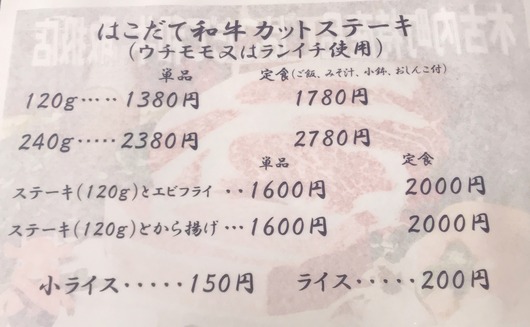 はこだて和牛カットステーキ
(ウチモモ又はランイチ使用)
単品 定食(ご飯、みそ汁、小鉢、おしんこ付)
120g‥‥1380円 1780円
240g‥‥‥2380円 2780円
単品 定食
ステーキ(120g)とエビフライ‥1600円 2000円
ステーキ(120g)とから揚げ…1600円 2000円
小ライス‥‥‥150円 ライス‥‥‥200円